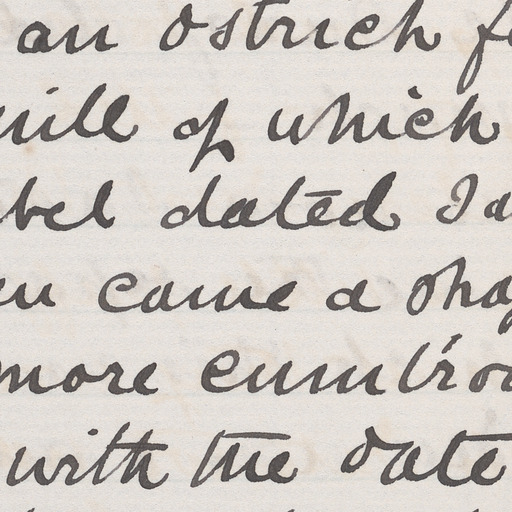 an ostrich fe
uill of which
bel dated Ja
en came a shag
more cumbro
with the date